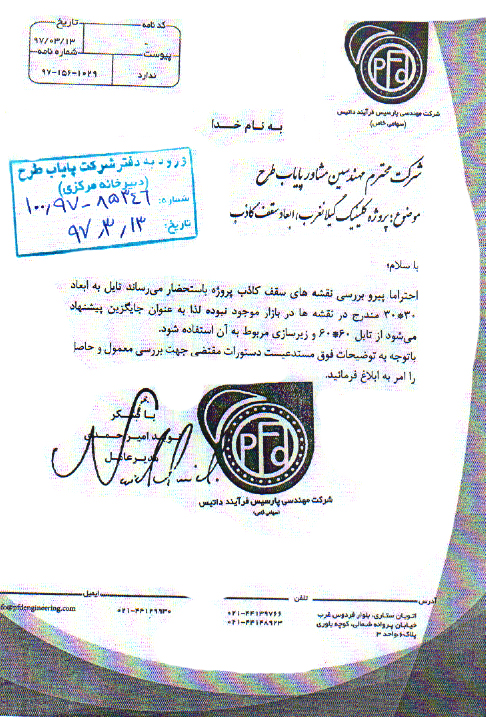 کد نامه
تاریخ
۹۷/۰۳/۱۳
پیوست
شماره نامه
ندارد
۹۷-۱۵۶-۱۰۲۹
PFd
شرکت مهندسی پارسیس فرآیند داتیس
(سهامی خاص)
به نام خدا
شرکت محترم مهندسین مشاور پایاب طرح
موضوع: پروژه کلینیک گیلانغرب، ابعاد سقف کاذب
ورود به دفتر شرکت پایاب طرح
(دبیرخانه مرکزی)
شماره: ۱۰۰,۹۷-۸۵۳۴۶
تاریخ: ۹۷,۳,۱۳
با سلام؛
احتراما پیرو بررسی نقشه های سقف کاذب پروژه باستحضار می‌رساند تایل به ابعاد
۳۰*۳۰ مندرج در نقشه ها در بازار موجود نبوده لذا به عنوان جایگزین پیشنهاد
می‌شود از تایل ۶۰*۶۰ و زیرسازی مربوط به آن استفاده شود.
باتوجه به توضیحات فوق مستدعیست دستورات مقتضی جهت بررسی معمول و حاصل
را امر به ابلاغ فرمائید.
با تشکر
امیراحمدی
مدیرعامل
PFd
شرکت مهندسی پارسیس فرآیند داتیس
(سهامی خاص)
آدرس
تلفن
ایمیل
اتوبان ستاری، بلوار فردوس غرب
خیابان پروانه شمالی، کوچه بلوری
پلاک۶،واحد ۳
۰۲۱-۴۴۱۳۹۷۶۶
۰۲۱-۴۴۱۴۸۹۲۳
۰۲۱-۴۴۱۲۹۹۳۰
@pfdengineering.com